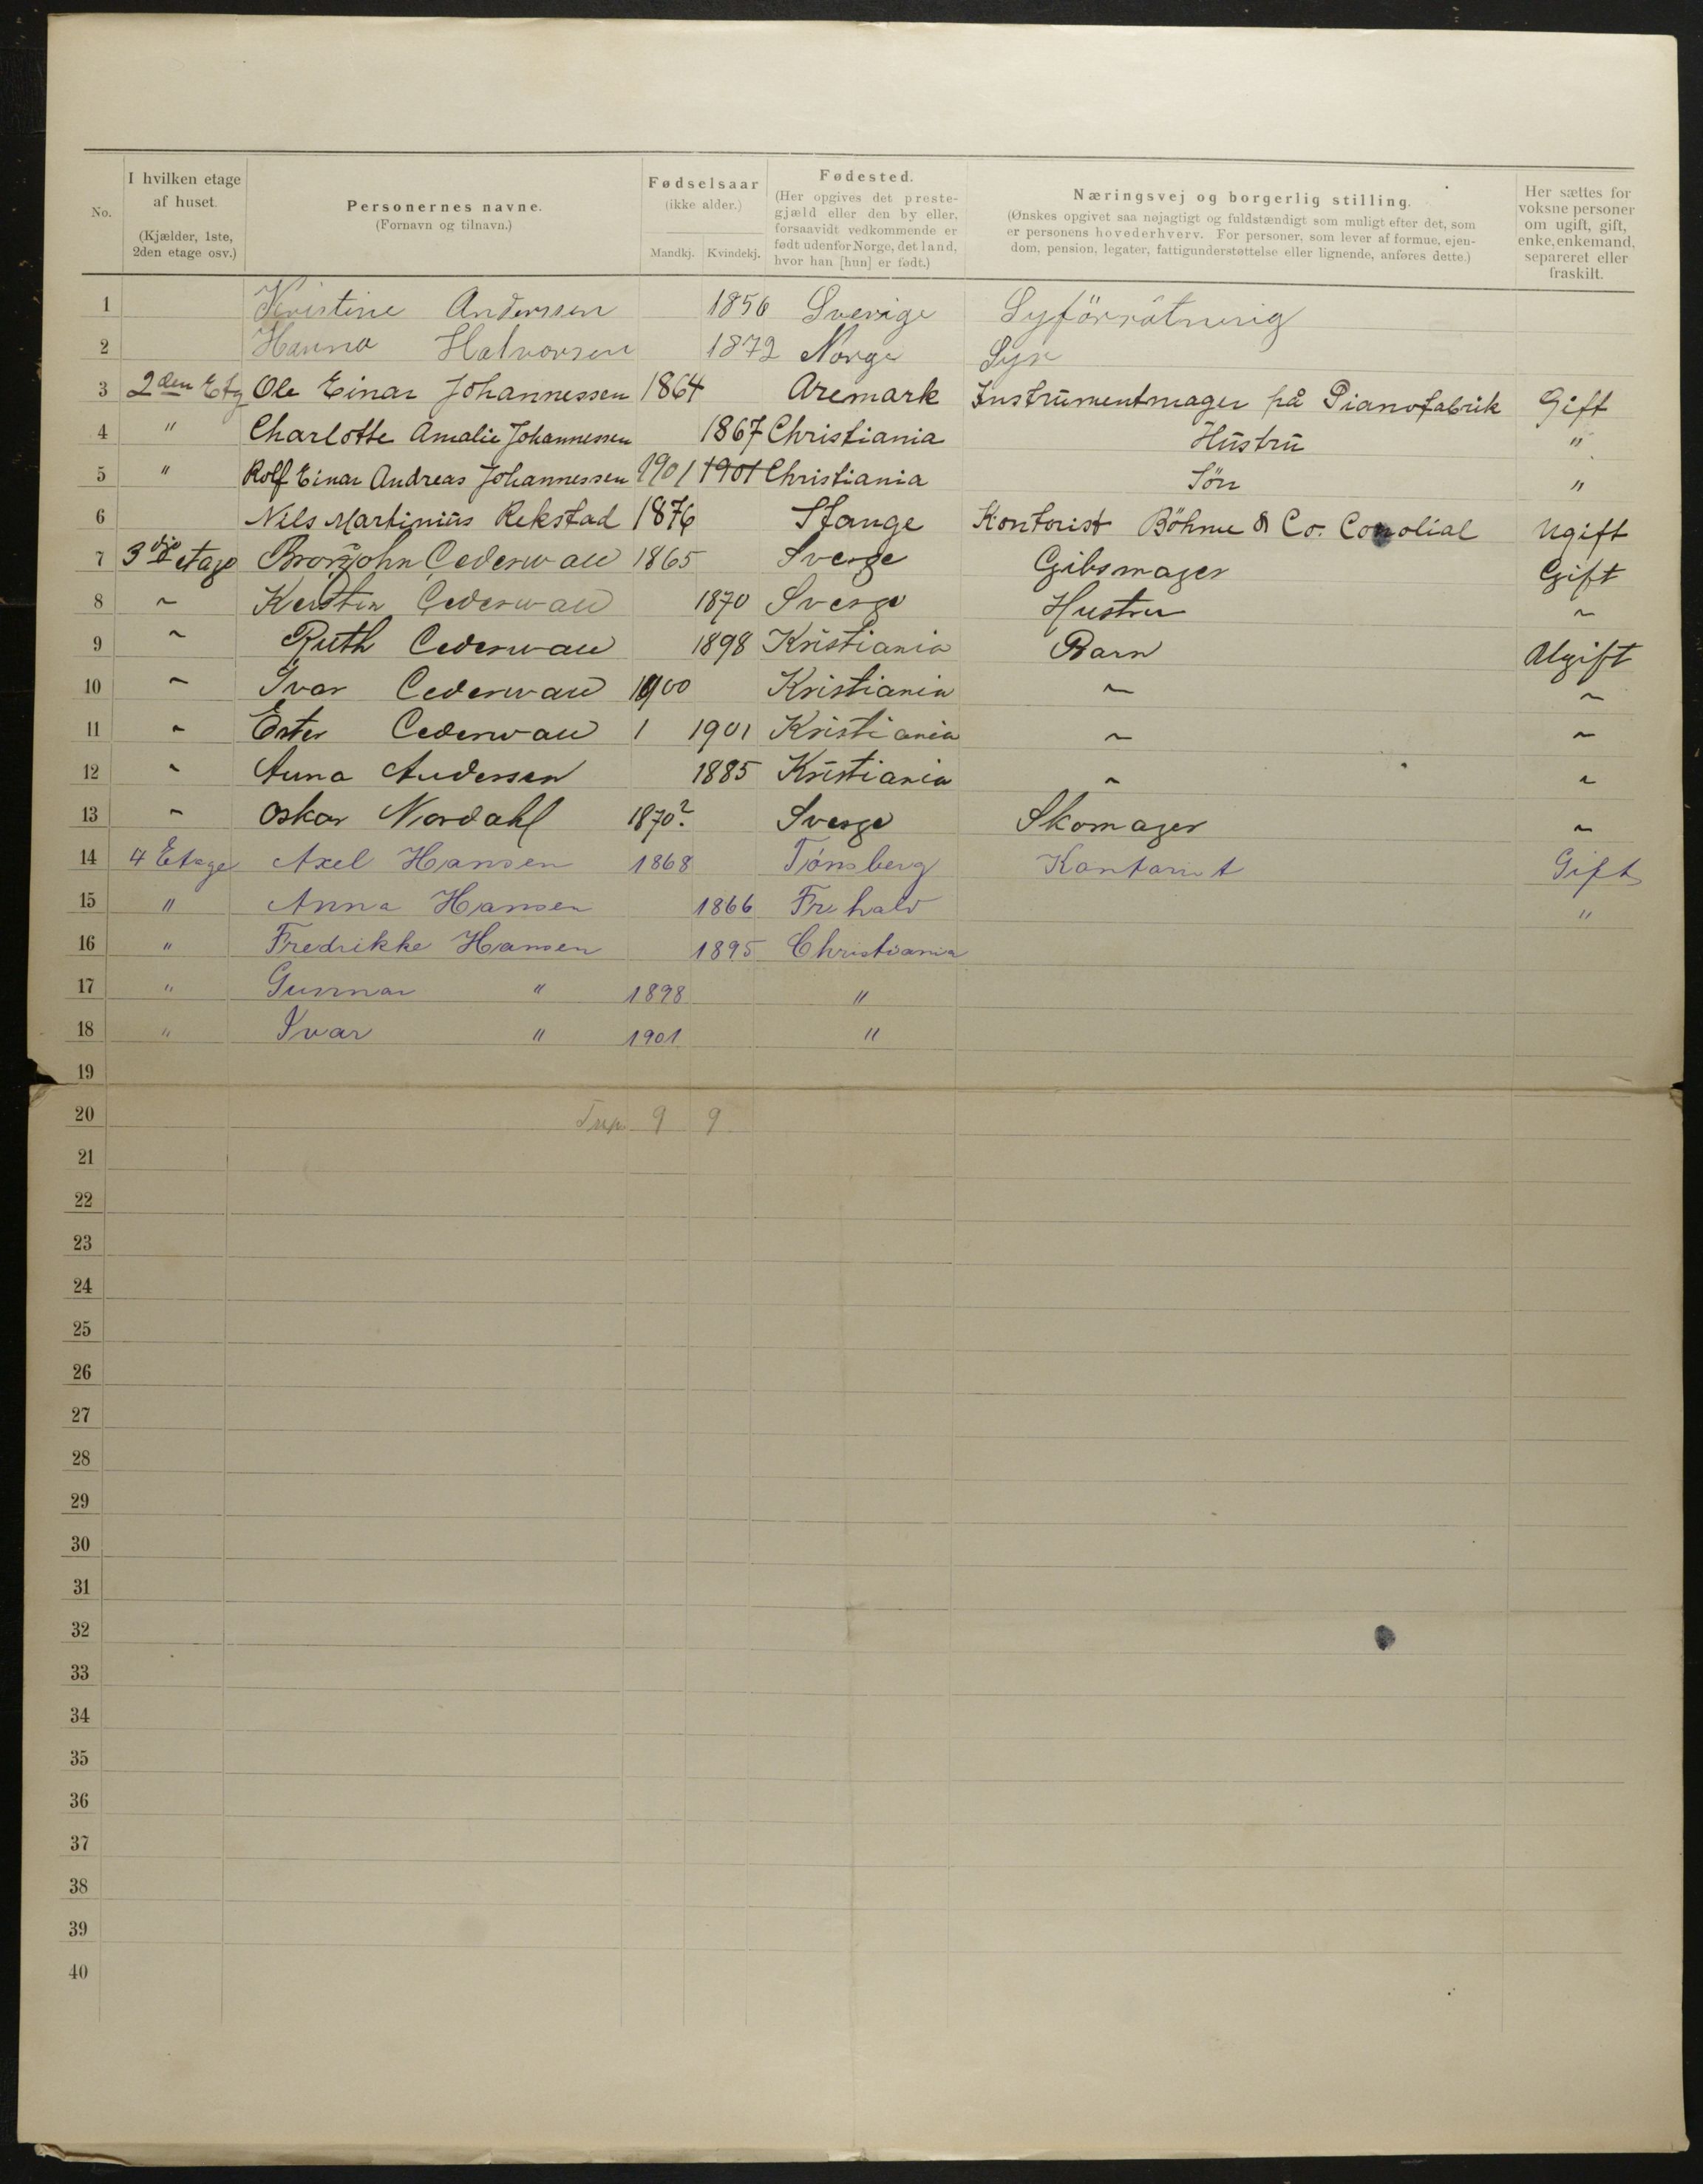 No.
I hvilken etage af huset. (Kjælder, 1ste, 2den etage osv.)
Personernes navne. (Fornavn og tilnavn.)
Fødselsaar (ikke alder.) Mandkj. Kvindekj.
Fødested. (Her opgives det prestegjæld eller den by eller, forsaavidt vedkommende er født udenfor Norge, det land, hvor han [hun] er født.)
Næringsvej og borgerlig stilling. (Ønskes opgivet saa nøjagtigt og fuldstændigt som muligt efter det, som er personens hovederhverv. For personer, som lever af formue, ejendom, pension, legater, fattigunderstøttelse eller lignende, anføres dette.)
Her sættes for voksne personer om ugift, gift, enke, enkemand, separeret eller fraskilt.
1 Kristine Anderssen 1856 Sverige
2 Hanna Halvorsen 1872 Norge
3 2den Etg Ole Einar Johannessen 1864 Aremark Instrümentmager på Pianofabrik Gift
4 " Charlotte Amalie Johannessen 1867 Christiania Hüstrü "
5 " Rolf Einar Andreas Johannessen 1901 1901 Christiania Sön "
6 Nils Martiniüs Rekstad 1876 Stange Kontorist Böhme & Co. Ugift
7 3die etage John Cederwall 1865 Sverge Gibsmager Gift
8 ~ Kerstin Cederwall 1870 Sverge Hustru ~
9 ~ Ruth Cederwall 1898 Kristiania Barn Ugift
10 ~ Ivar Cederwall 1900 Kristiania ~ ~
11 ~ Ester Cederwall 1 1901 Kristiania ~ ~
12 ~ Anna Andersen 1885 Kristiania ~ ~
13 ~ Oskar Nordahl 1870? Sverge Skomager ~
14 4 Etage Axel Hansen 1868 Tönsberg Kontorist Gift
15 " Anna Hansen 1866 Fr. hald "
16 " Fredrikke Hansen 1895 Christiania
17 " Gunnar " 1898 "
18 " Ivar " 1901 "
19
20 9 9
21
22
23
24
25
26
27
28
29
30
31
32
33
34
35
36
37
38
39
40